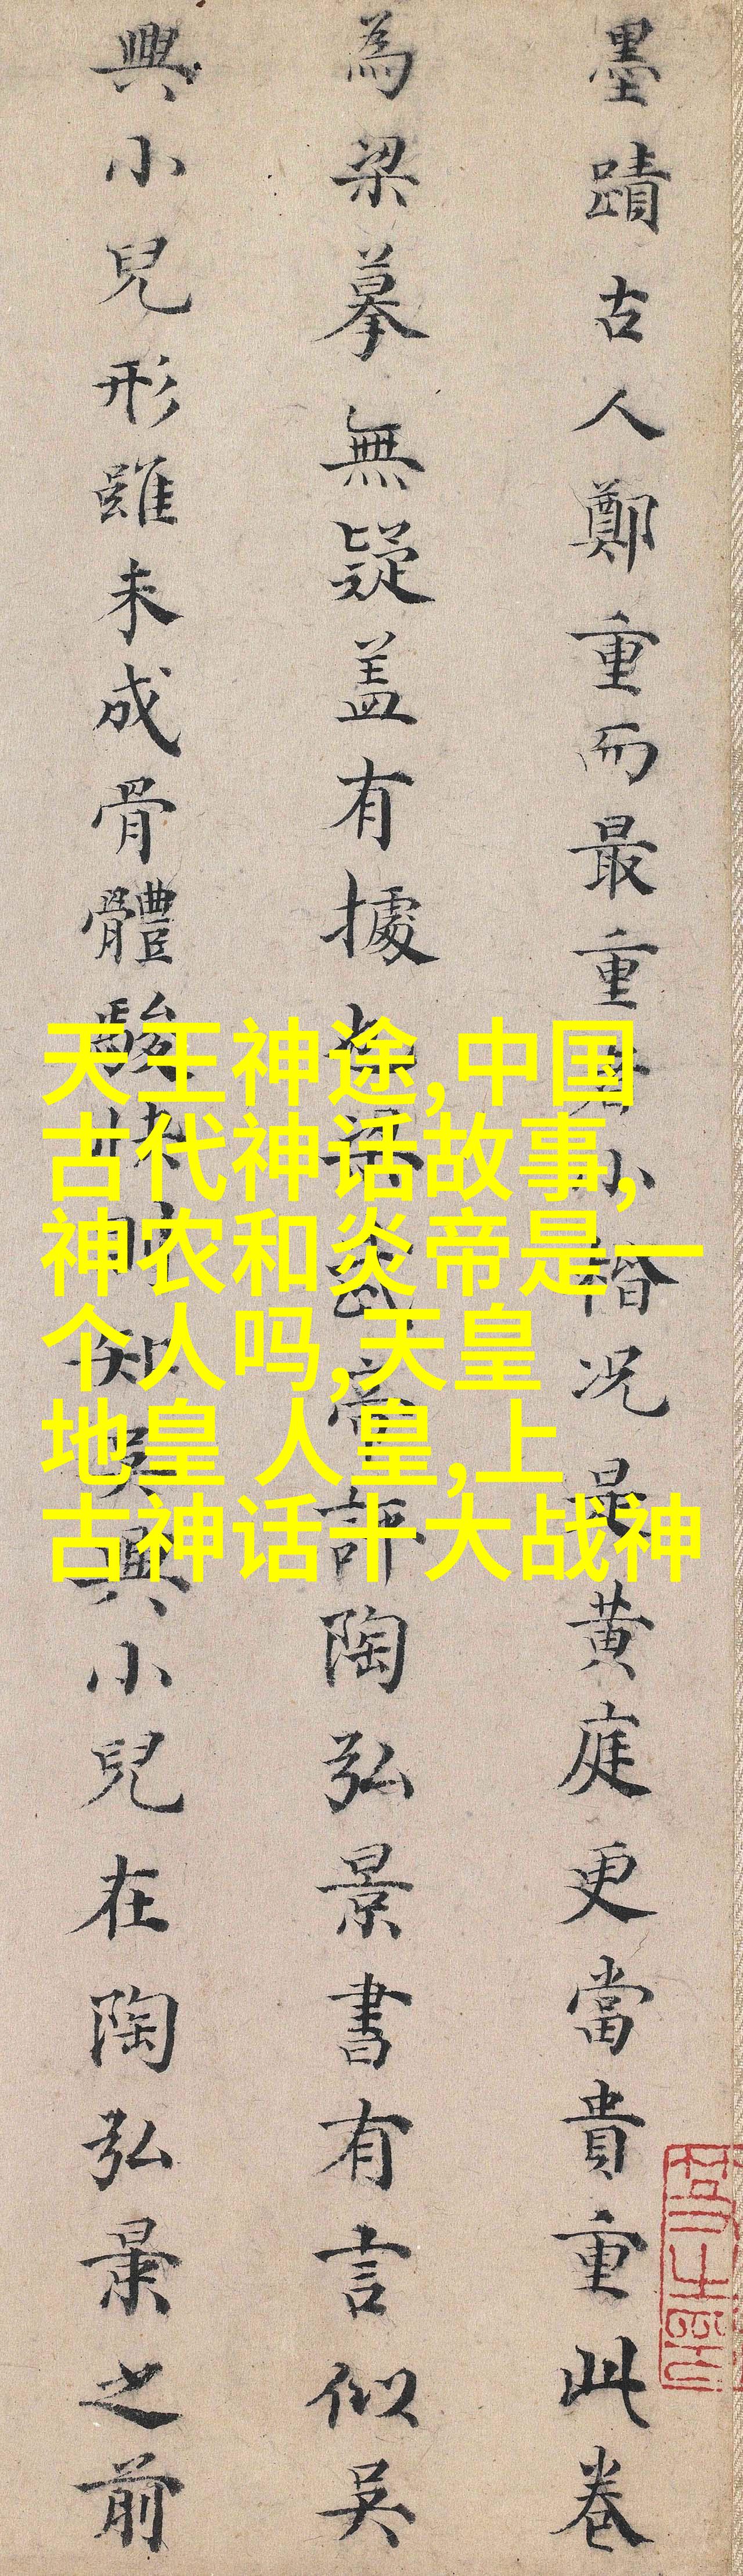 墨蹟古人鄭重而最重者小楷况是黄庭更當貴重此卷
為梁摹無疑蓋有據梁武帝評陶弘景書有言似吴
興小兒形雖未成骨體駿快則知吴興小兒在陶弘景之前
天王神途,中国
古代神话故事,
神农和炎帝是一
个人吗,天皇
地皇 人皇,上
古神话十大战神